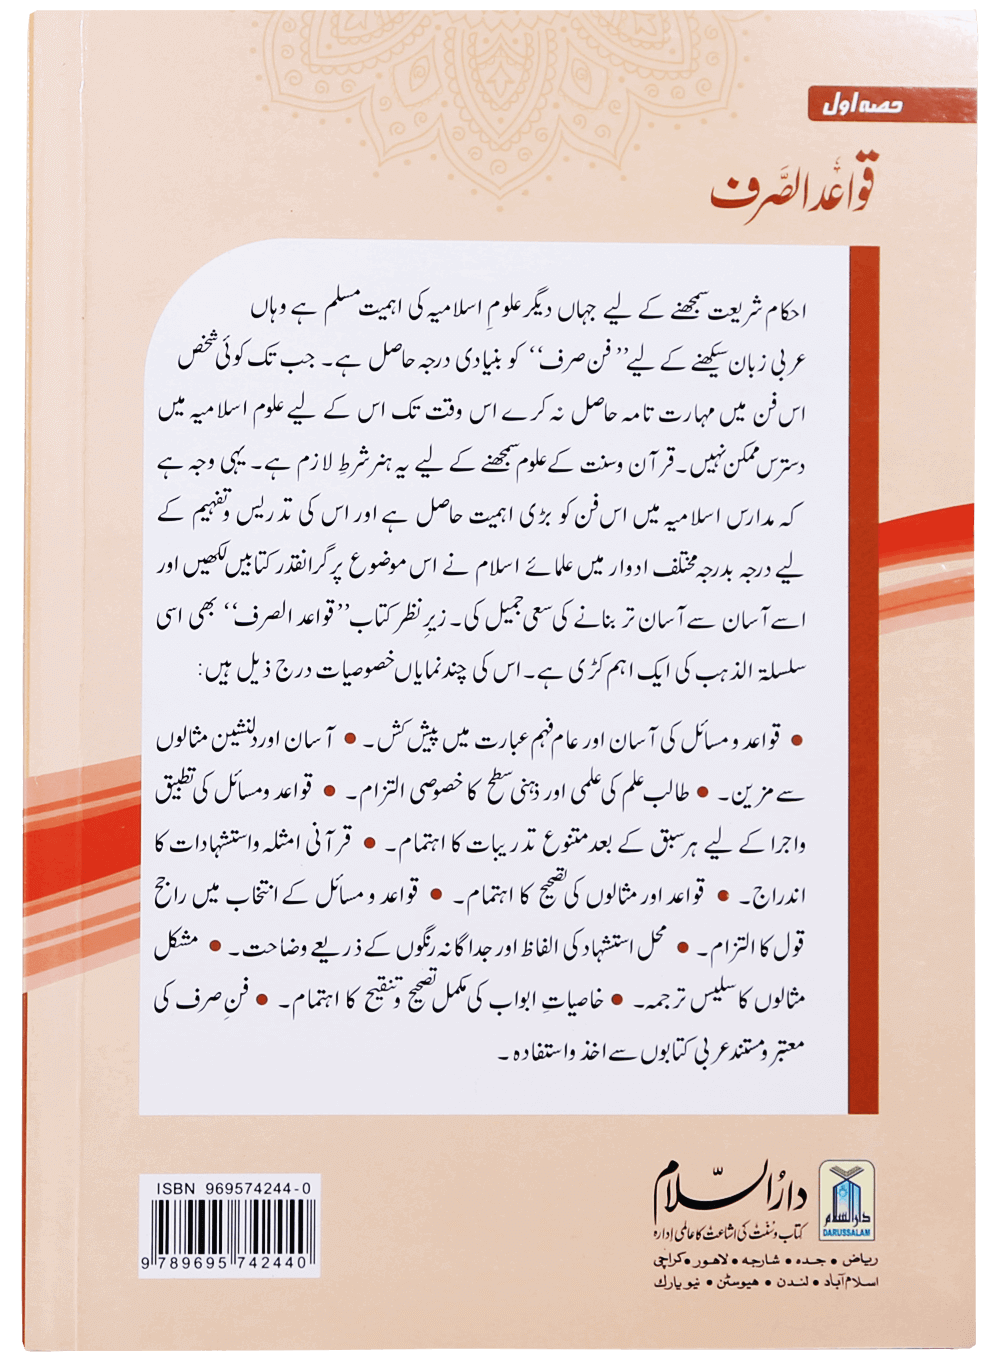 حصہ اول
قواعد الصَّرف
احکام شریعت سمجھنے کے لیے جہاں دیگر علومِ اسلامیہ کی اہمیت مسلم ہے وہاں
عربی زبان سیکھنے کے لیے ’’فن صرف‘‘ کو بنیادی درجہ حاصل ہے۔ جب تک کوئی شخص
اس فن میں مہارت تامہ حاصل نہ کرے اس وقت تک اس کے لیے علوم اسلامیہ میں
دسترس ممکن نہیں۔ قرآن وسنت کے علوم سمجھنے کے لیے یہ ہنر شرطِ لازم ہے۔ یہی وجہ ہے
کہ مدارس اسلامیہ میں اس فن کو بڑی اہمیت حاصل ہے اور اس کی تدریس وتفہیم کے
لیے درجہ بدرجہ مختلف ادوار میں علمائے اسلام نے اس موضوع پر گرانقدر کتابیں لکھیں اور
اسے آسان سے آسان تر بنانے کی سعی جمیل کی۔ زیرِ نظر کتاب ’’قواعد الصرف‘‘ بھی اسی
سلسلۃ الذہب کی ایک اہم کڑی ہے۔ اس کی چند نمایاں خصوصیات درج ذیل ہیں:
● قواعد و مسائل کی آسان اور عام فہم عبارت میں پیش کش۔ ● آسان اور دلنشین مثالوں
سے مزین۔ ● طالب علم کی علمی اور ذہنی سطح کا خصوصی التزام۔ ● قواعد ومسائل کی تطبیق
واجرا کے لیے ہر سبق کے بعد متنوع تدریبات کا اہتمام۔ ● قرآنی امثلہ واستشہادات کا
اندراج۔ ● قواعد اور مثالوں کی تصحیح کا اہتمام۔ ● قواعد و مسائل کے انتخاب میں راجح
قول کا التزام۔ ● محل استشہاد کی الفاظ اور جداگانہ رنگوں کے ذریعے وضاحت۔ ● مشکل
مثالوں کا سلیس ترجمہ۔ ● خاصیاتِ ابواب کی مکمل تصحیح وتنقیح کا اہتمام۔ ● فنِ صرف کی
معتبر ومستند عربی کتابوں سے اخذ واستفادہ۔
ISBN 969574244-0
9 789695 742440
دارُالسّلام
کتاب وسنّت کی اشاعت کا عالمی ادارہ
دارالسلام
DARUSSALAM
ریاض • جدہ • شارجہ • لاهور • کراچی
اسلام آباد • لندن • هیوسٹن • نیو یارک